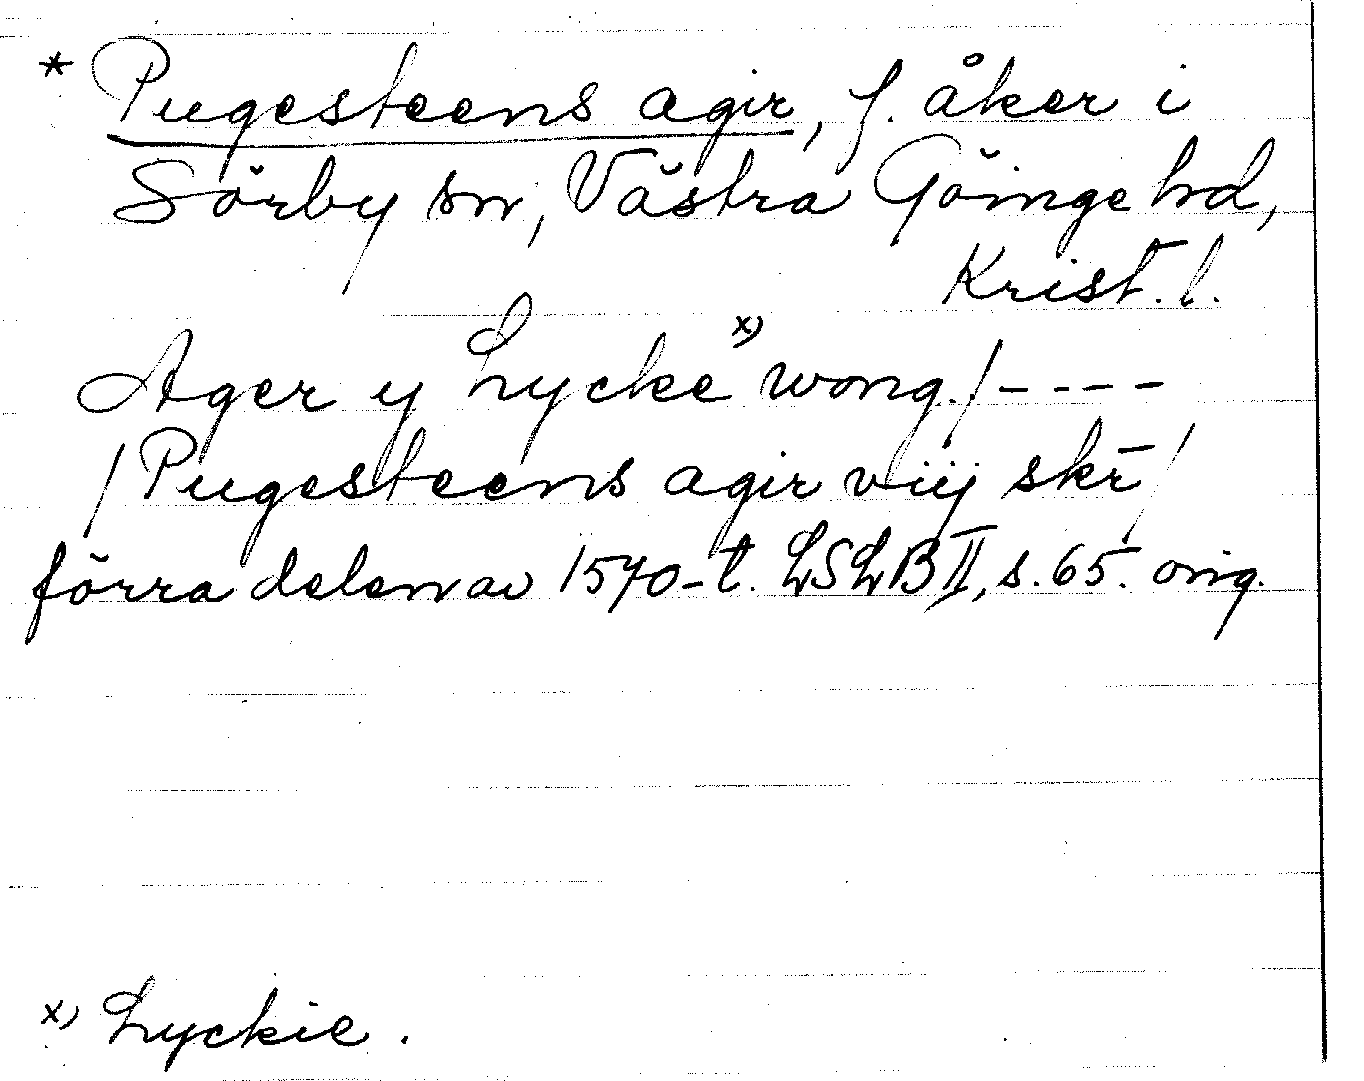 * Pugesteens agir, f. åker i
Sörby sn, Västra Göinge hd,
Krist. l.
Ager y Lycke x) wong./----
/Pugesteens agir viij skr̄/
förra delen av 1570-t. LSLB II, s. 65. orig.
x) Lyckie.